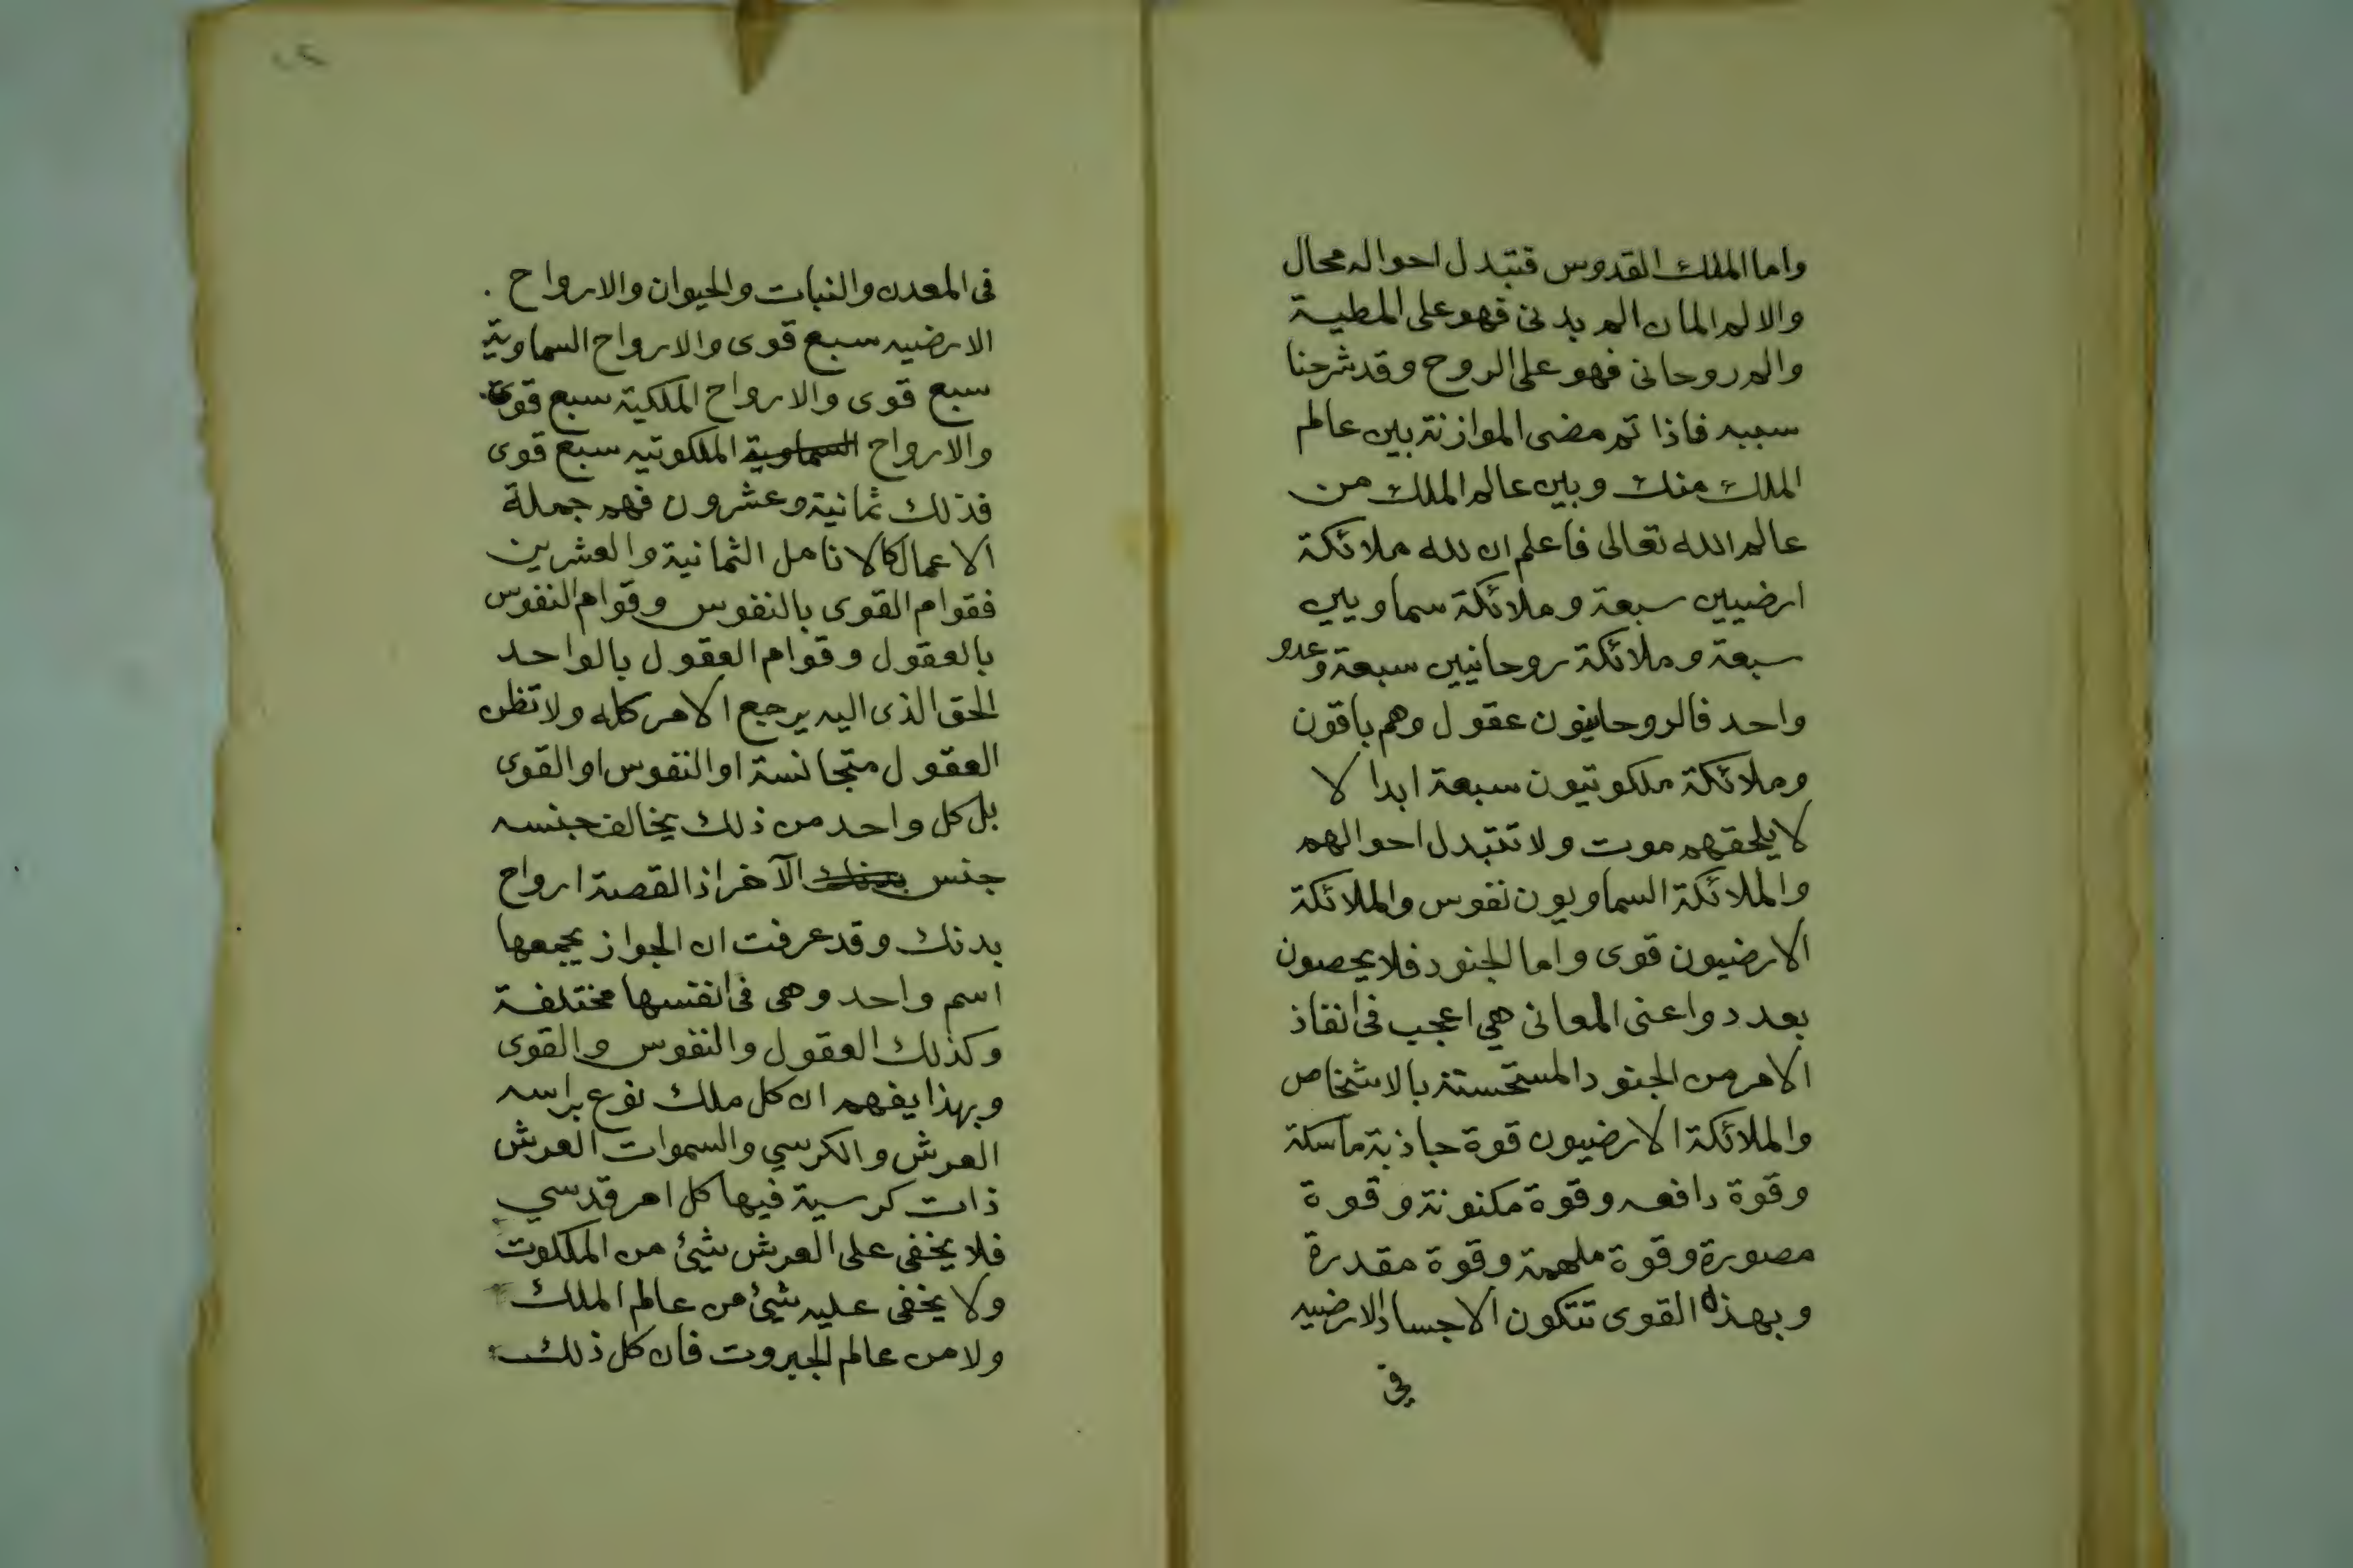 واما الملك القدوس فتبدل احواله محال
والالم المان الم بدنى فهو على المطية
والم روحانى فهو على الروح وقد شرحنا
سببه فاذا تم مضى الموازنة بين عالم
الملك منك وبين عالم الملك من
عالم الله تعالى فاعلم ان لله ملائكة
ارضيين سبعة وملائكة سماويين
سبعة وملائكة روحانيين سبعة وعدو
واحد فالروحانيون عقول وهم باقون
وملائكة ملكوتيون سبعة ابدا لا
لا يلحقهم موت ولا تتبدل احوالهم
والملائكة السماويون نفوس والملائكة
الارضيون قوى واما الجنود فلا يحصون
بعدد واعنى المعانى هي اعجب فى انفاذ
الامر من الجنود المستحسنة بالاشخاص
والملائكة الارضيون قوة جاذبة ماسكة
وقوة دافعه وقوة مكنونة وقوة
مصورة وقوة ملهمة وقوة مقدرة
وبهذه القوى تتكون الاجساد الارضيه
في
فى المعدن والنبات والحيوان والارواح .
الارضيه سبع قوى والارواح السماوية
سبع قوى والارواح الملكية سبع قوى
والارواح السماوية الملكوتيه سبع قوى
فذلك ثمانية وعشرون فهم جملة
الاعمال كالانامل الثمانية والعشرين
فقوام القوى بالنفوس وقوام النفوس
بالعقول وقوام العقول بالواحد
الحق الذى اليه يرجع الامر كله ولا تظن
العقول متجانسة او النفوس او القوى
بل كل واحد من ذلك يخالف جنسه
جنس بدنك الآخر اذ القصة ارواح
بدنك وقد عرفت ان الجواز يجمعها
اسم واحد وهى فى انفسها مختلفة
وكذلك العقول والنفوس والقوى
وبهذا يفهم ان كل ملك نوع براسه
العرش والكرسي والسموات العرش
ذات كرسية فيها كل امر قدسي
فلا يخفى على العرش شيئ من الملكوت
ولا يخفى عليه شيئ من عالم الملك
ولا من عالم الجبروت فان كل ذلك